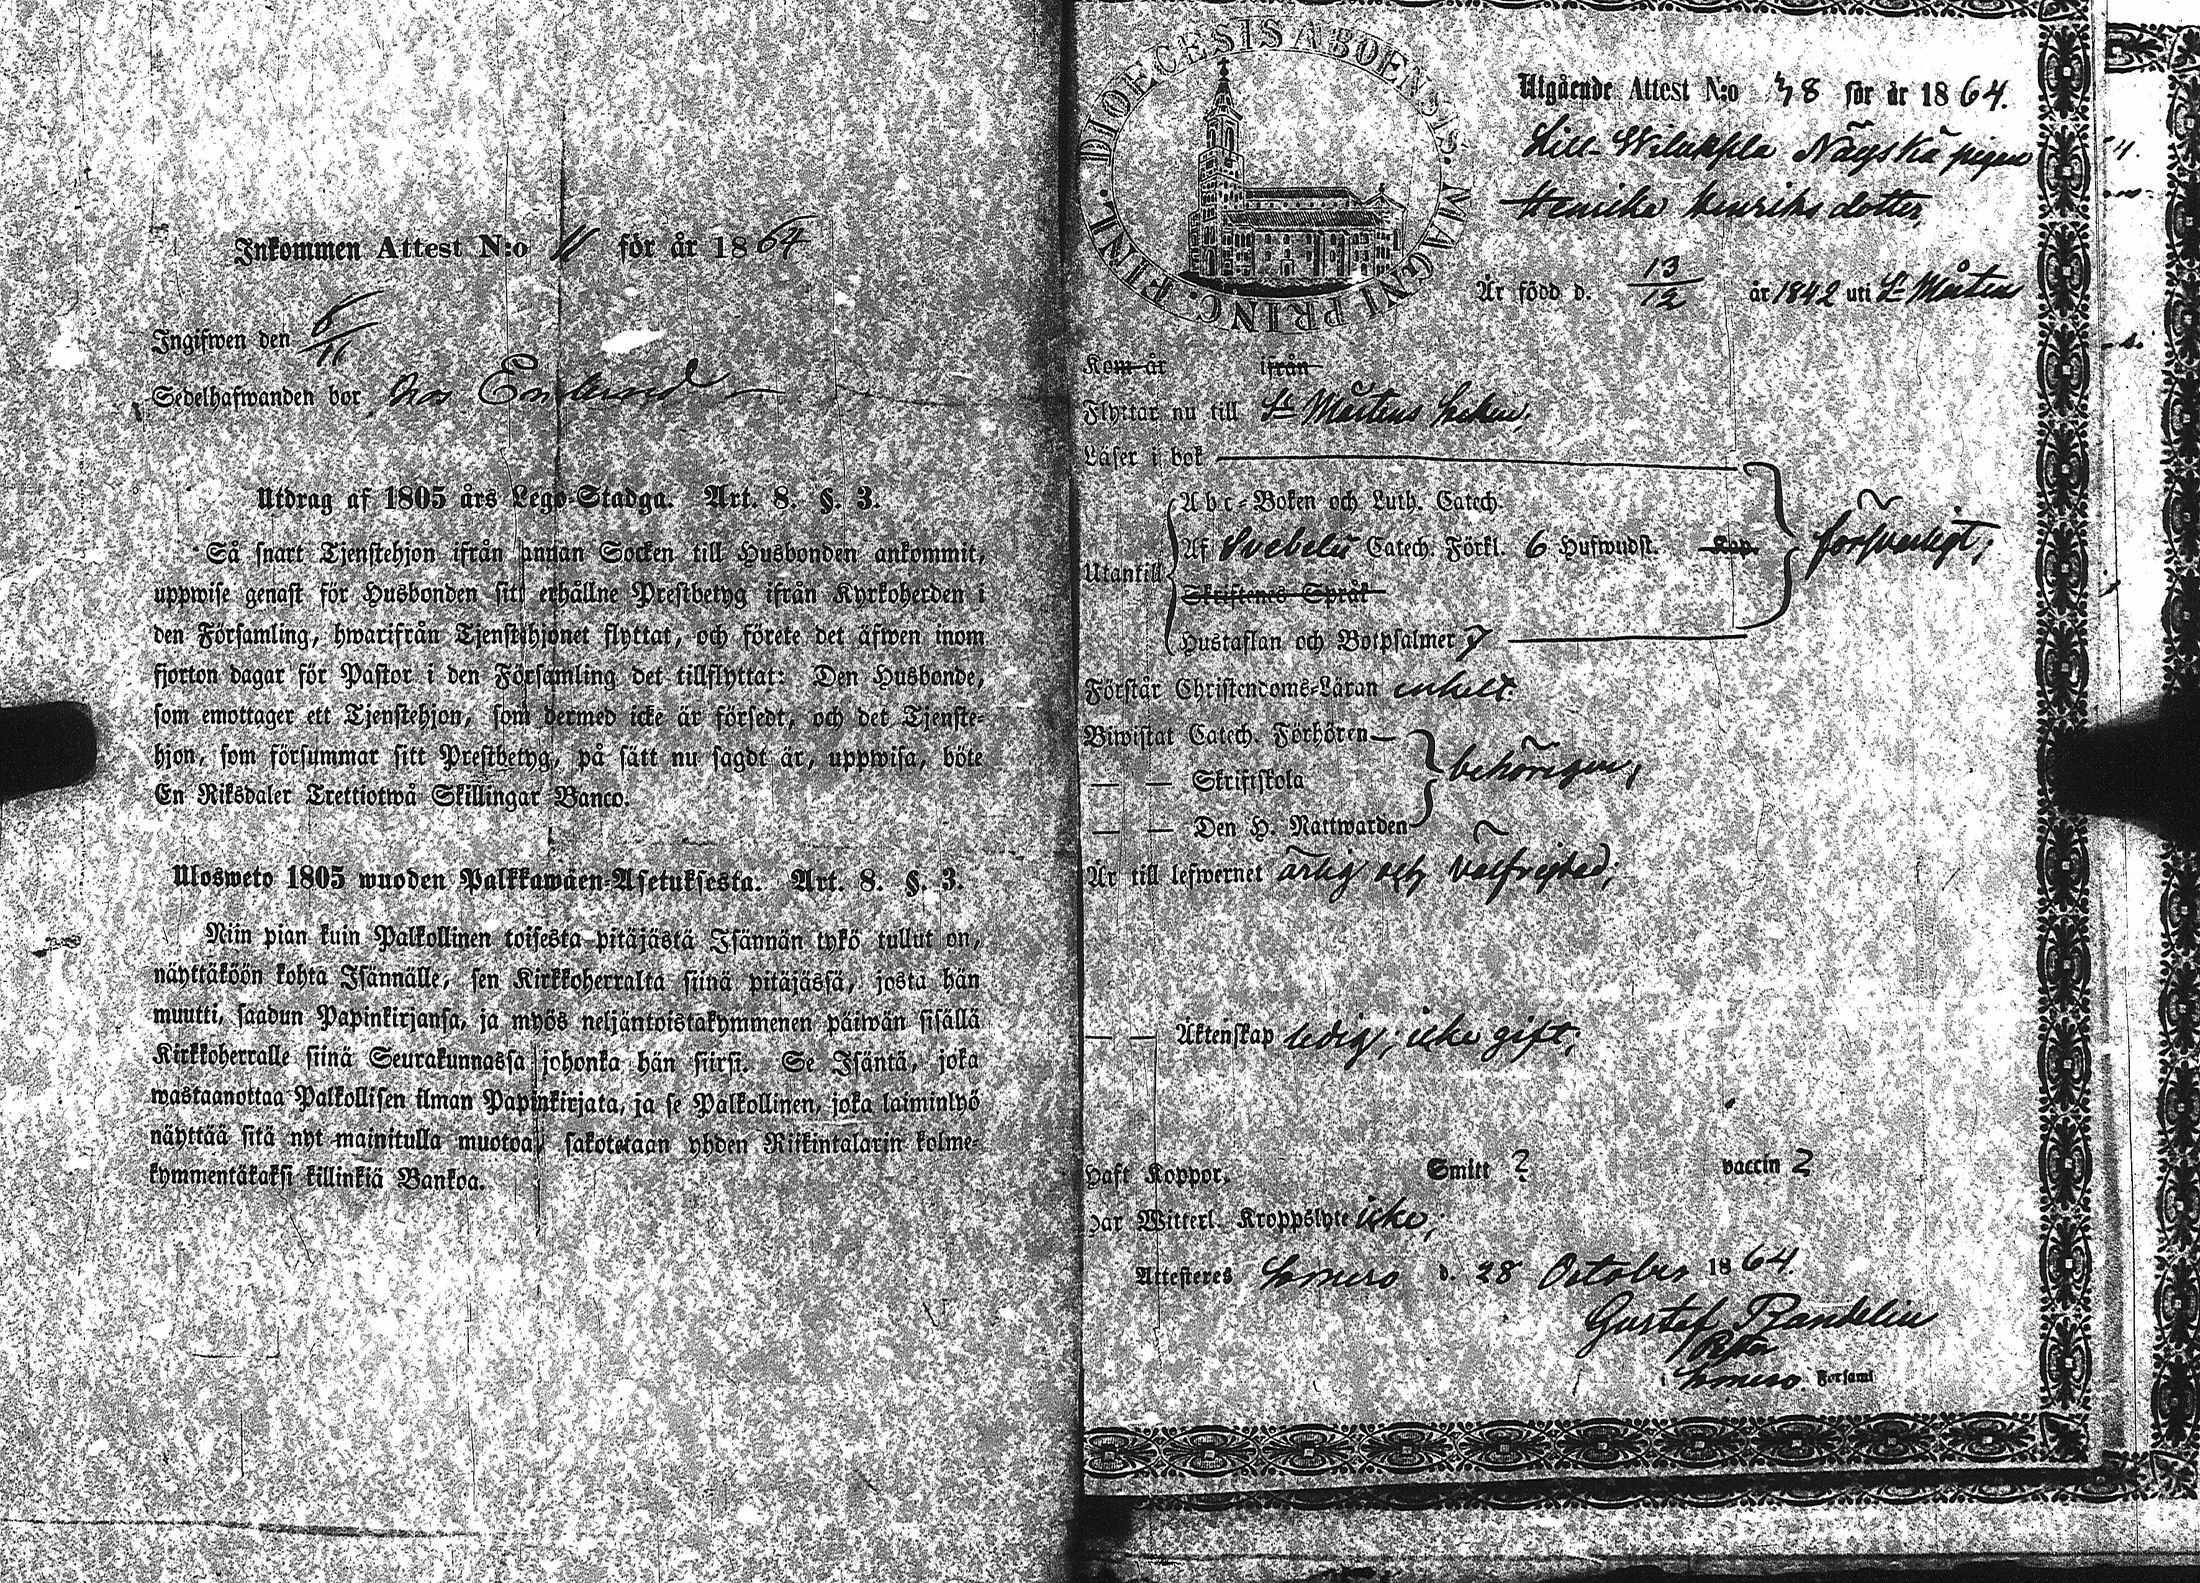 Inkommen Attest N:o 11 för år 1864
Ingifwen den 6/11
Sedelhafwanden bor hos
Utdrag af 1805 års Lego-Stadga. Art. 8. §. 3.
Så snart Tjenstehjon ifrån annan Socken till Husbonden ankommit,
uppwise genast för Husbonden sitt erhållne Prestbetyg ifrån Kyrkoherden i
den Församling, hwarifrån Tjenstehjonet flyttat, och förete det äfwen inom
fjorton dagar för Pastor i den Församling det tillflyttat: Den Husbonde,
som emottager ett Tjenstehjon, som dermed icke är försedt, och det Tjenste-
hjon, som försummar sitt Prestbetyg, på sätt nu sagdt är, uppwisa, böte
En Riksdaler Trettiotwå Skillingar Banco.
Ulosweto 1805 wuoden Palkkawäen-Asetuksesta. Art. 8. §. 3.
Niin pian kuin Palkollinen toisesta pitäjästä Isännän tykö tullut on,
näyttäköön kohta Isännälle, sen Kirkkoherralta siinä pitäjässä, josta hän
muutti, saadun Papinkirjansa, ja myös neljäntoistakymmenen päiwän sisällä
Kirkkoherralle siinä Seurakunnassa johonka hän siirsi. Se Isäntä, joka
wastaanottaa Palkollisen ilman Papinkirjata, ja se Palkollinen, joka laiminlyö
näyttää sitä nyt mainitulla muotoa, sakotetaan yhden Riikintalarin kolme-
kymmentäkaksi killinkiä Bankoa.
DIOECESIS ABOENSIS. MAGNI PRINC. FINL.
Utgående Attest N:o 38 för år 1864.
Lill-Wiluksela Näyskä pigan
Henrika Henriksdotter,
Är född d. 13/12 år 1842 uti St Mårtens
Kom år ifrån
Flyttar nu till St Mårtens Socken;
Läser i bok
Abc-Boken och Luth. Catech.
Utantill
Af Svebelii Catech. Förkl. 6 Hufwudst. Kap. försvarligt;
Skriftenes Språk
Hustaflan och Botpsalmer 7
Förstår Christendoms-Läran enkelt.
Biwistat Catech. Förhören
— — Skriftskola behörigen;
— — Den H. Nattwarden
Är till lefwernet ärlig och välfrejdad;
— — Äktenskap ledig; icke gift;
Haft Koppor. Smitt ? vaccin 2
Har Witterl. Kroppslyte icke;
Attesteres Somero d. 28 October 1864.
Gustaf Randelin
i Somero Forsaml